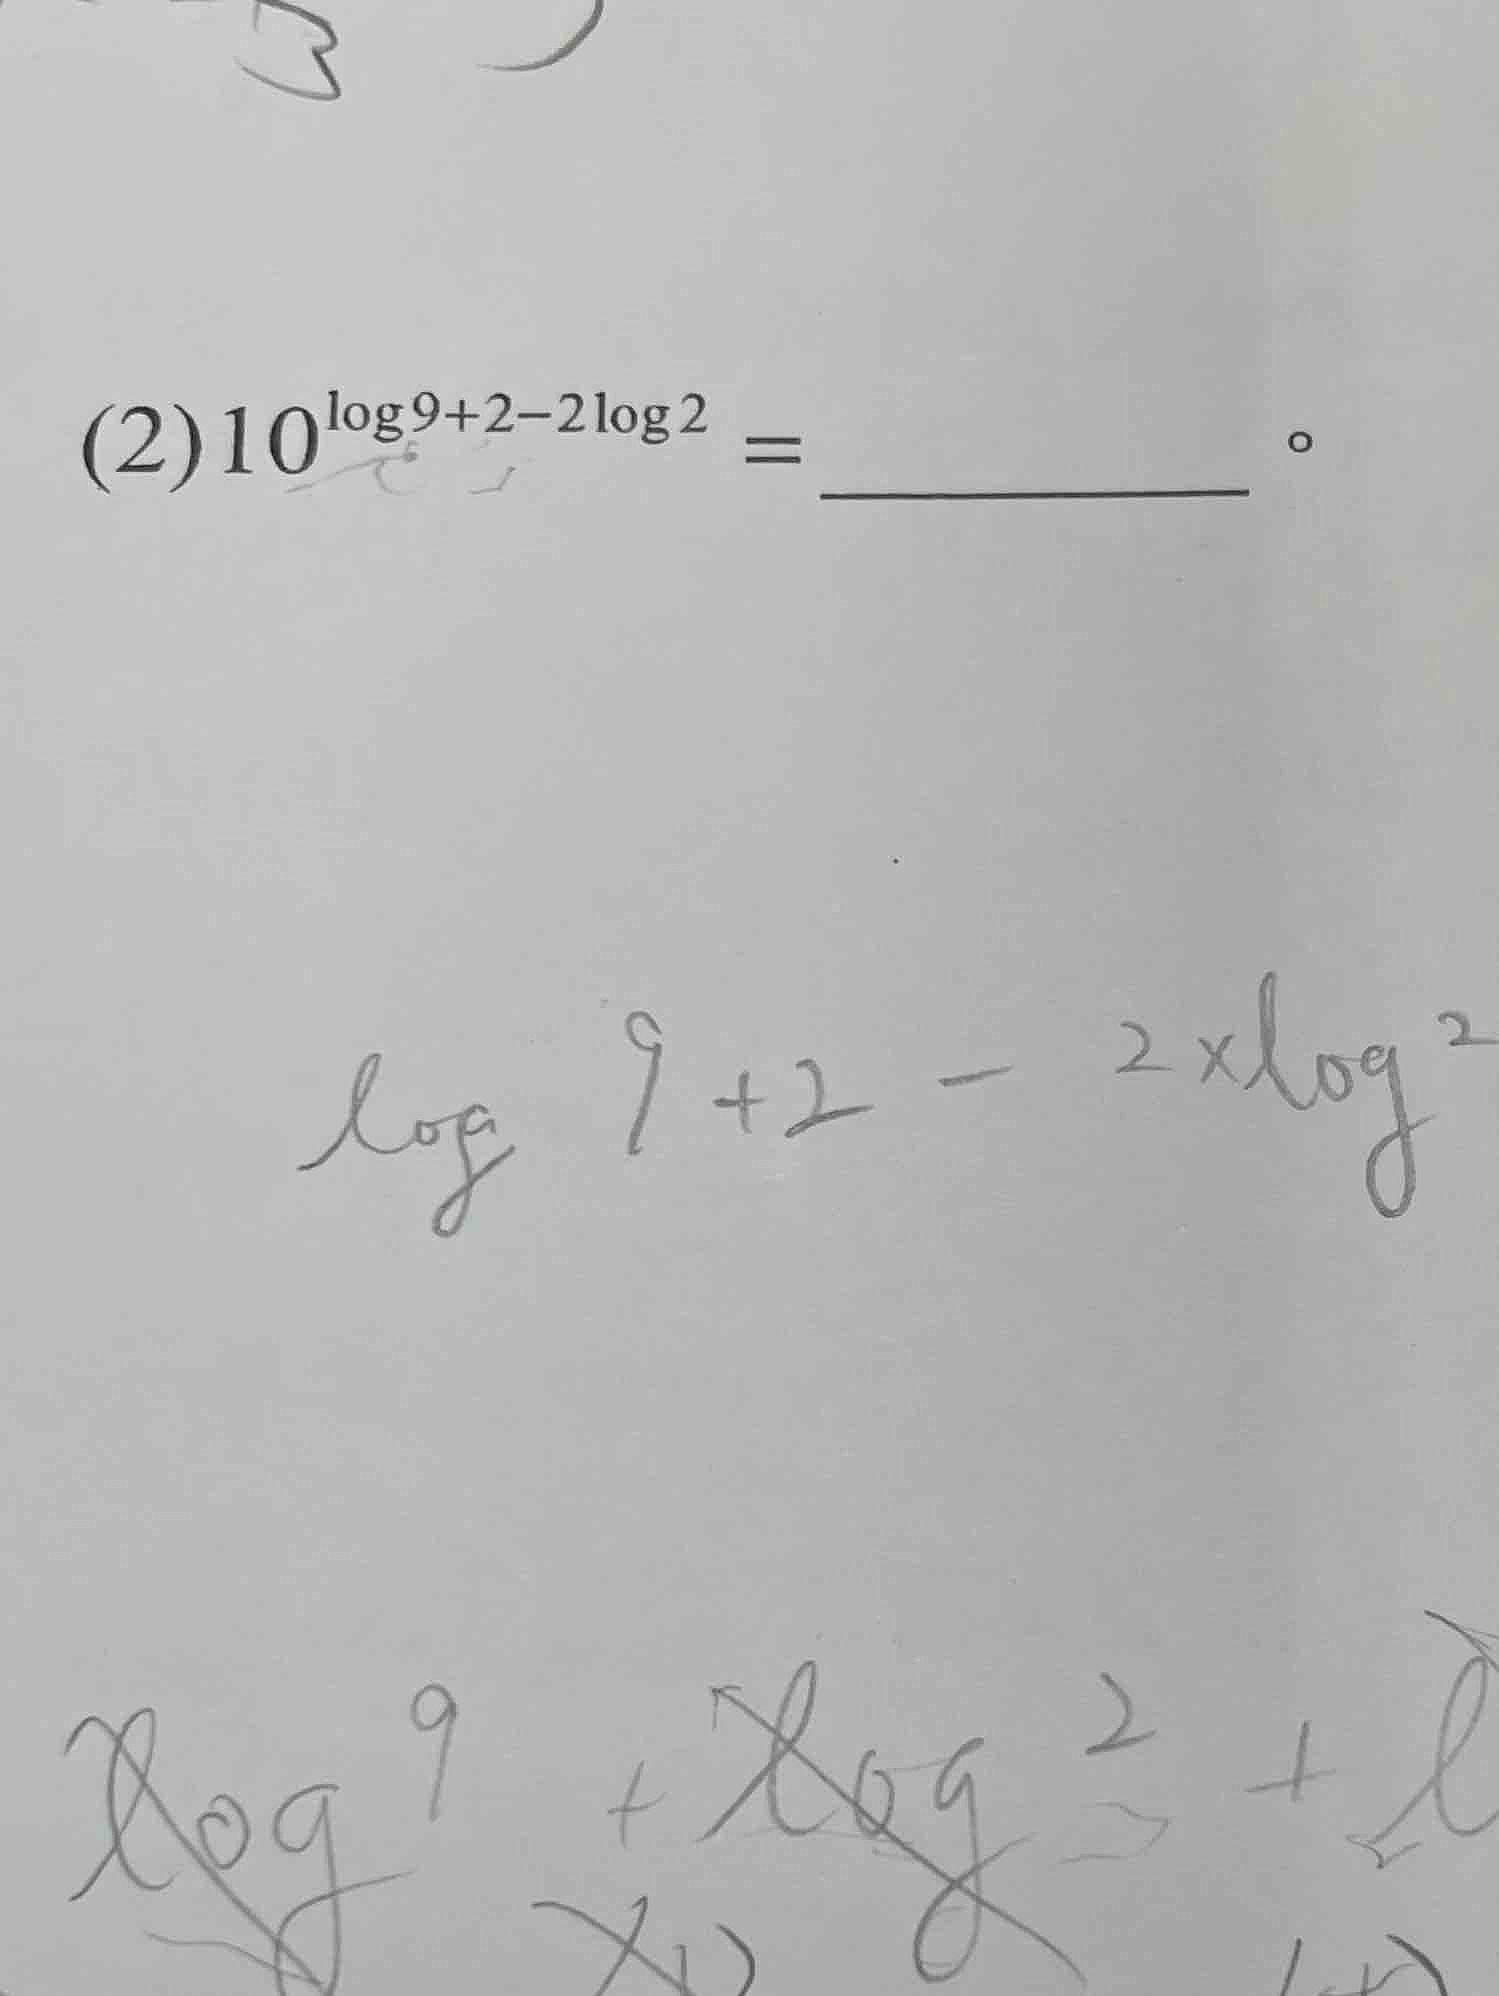 3 )
(2) 10^{log 9+2−2 log 2} = ________ 。
log 9 + 2 − 2 × log 2
log 9 + log 2 + l